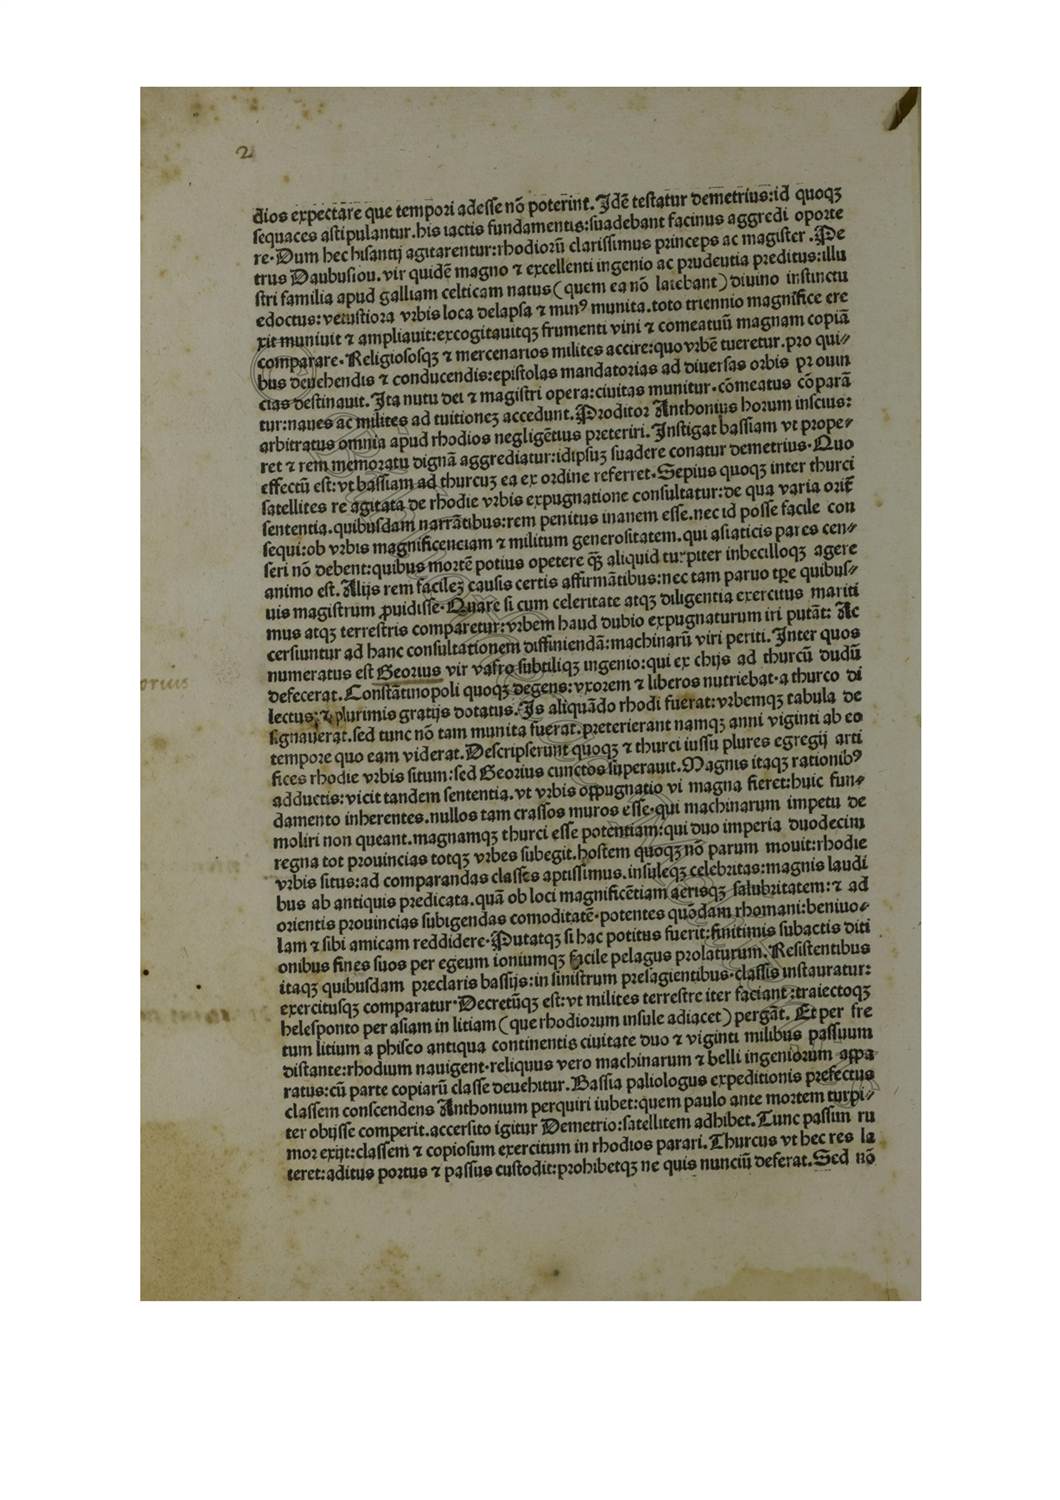 2
dios expectare que tempori adesse nõ poterint. Idẽ testatur demetrius: id quoqꝫ
sequaces astipulantur. his iactis fundamentis: suadebant facinus aggredi oporte
re. Dum hec bisantij agitarentur: rhodiorũ clarissimus princeps ac magister. Pe
trus Daubusson. vir quidẽ magno ⁊ excellenti ingenio ac prudentia preditus: illu
stri familia apud galliam celticam natus (quem ea nõ latebant) diuino instinctu
edoctus: vetustiora vrbis loca delapsa ⁊ minꝰ munita. toto triennio magnifice ere
xit muniuit ⁊ ampliauit: excogitauitqꝫ frumenti vini ⁊ comeatuũ magnam copiã
comparare. Religiososqꝫ ⁊ mercenarios milites accire: quo vrbẽ tueretur. pro qui⸗
bus deuehendis ⁊ conducendis: epistolas mandatorias ad diuersas orbis prouin
cias destinauit. Ita nutu dei ⁊ magistri opera: ciuitas munitur. cõmeatus cõparã
tur: naues ac milites ad tuitioneꝫ accedunt. Proditor Anthonius horum inscius:
arbitratus omnia apud rhodios negligẽtius preteriri. Instigat bassiam vt prope⸗
ret ⁊ rem memoratu dignã aggrediatur: idipsuꝫ suadere conatur demetrius. Quo
effectũ est: vt bassiam ad thurcuꝫ ea ex ordine referret. Sepius quoqꝫ inter thurci
satellites re agitata de rhodie vrbis expugnatione consultatur: de qua varia oritᷣ
sententia. quibusdam narrãtibus: rem penitus inanem esse. nec id posse facile con
sequi: ob vrbis magnificenciam ⁊ militum generositatem. qui asiaticis pares cen⸗
seri nõ debent: quibus mortẽ potius opetere qꝫ̃ aliquid turpiter inbecilloqꝫ agere
animo est. Alijs rem facileꝫ causis certis affirmãtibus: nec tam paruo tp̃e quibus⸗
uis magistrum ꝓuidisse. Quare si cum celeritate atqꝫ diligentia exercitus mariti
mus atqꝫ terrestris comparetur: vrbem haud dubio expugnaturum iri putãt: Ac
cersiuntur ad hanc consultationem diffiniendã: machinarũ viri periti. Inter quos
numeratus est Georius vir vafro subtiliqꝫ ingenio: qui ex chijs ad thurcũ dudũ
defecerat. Constãtinopoli quoqꝫ degens: vxorem ⁊ liberos nutriebat. a thurco di
lectus: ⁊ plurimis gratijs dotatus. Is aliquãdo rhodi fuerat: vrbemqꝫ tabula de
signauerat. sed tunc nõ tam munita fuerat. preterierant namqꝫ anni viginti ab eo
tempore quo eam viderat. Descripserunt quoqꝫ ⁊ thurci iussu plures egregij arti
fices rhodie vrbis situm: sed Georius cunctos superauit. Magnis itaqꝫ rationibꝰ
adductis: vicit tandem sententia. vt vrbis oppugnatio vi magna fieret: huic fun⸗
damento inherentes. nullos tam crassos muros esse. qui machinarum impetu de
moliri non queant. magnamqꝫ thurci esse potentiam: qui duo imperia duodecim
regna tot prouincias totqꝫ vrbes subegit. hostem quoqꝫ nõ parum mouit: rhodie
vrbis situs: ad comparandas classes aptissimus. insuleqꝫ celebritas: magnis laudi
bus ab antiquis predicata. quã ob loci magnificẽtiam aerisqꝫ salubritatem: ⁊ ad
orientis prouincias subigendas comoditatẽ. potentes quõdam rhomani: beniuo⸗
lam ⁊ sibi amicam reddidere. Putatqꝫ si hac potitus fuerit: finitimis subactis diti
onibus fines suos per egeum ioniumqꝫ facile pelagus prolaturum. Resistentibus
itaqꝫ quibusdam preclaris bassijs: in sinistrum presagientibus. classis instauratur:
exercitusqꝫ comparatur. Decretũqꝫ est: vt milites terrestre iter faciant: traiectoqꝫ
helesponto per asiam in litiam (que rhodiorum insule adiacet) pergãt. Et per fre
tum litium a phisco antiqua continentis ciuitate duo ⁊ viginti milibus passuum
distante: rhodium nauigent. reliquus vero machinarum ⁊ belli ingeniorum appa
ratus: cũ parte copiarũ classe deuehitur. Bassia paliologus expeditionis prefectus
classem conscendens Anthonium perquiri iubet: quem paulo ante mortem turpi⸗
ter obijsse comperit. accersito igitur Demetrio: satellitem adhibet. Tunc passim ru
mor exijt: classem ⁊ copiosum exercitum in rhodios parari. Thurcus vt hec res la
teret: aditus portus ⁊ passus custodit: prohibetqꝫ ne quis nunciũ deferat. Sed nõ